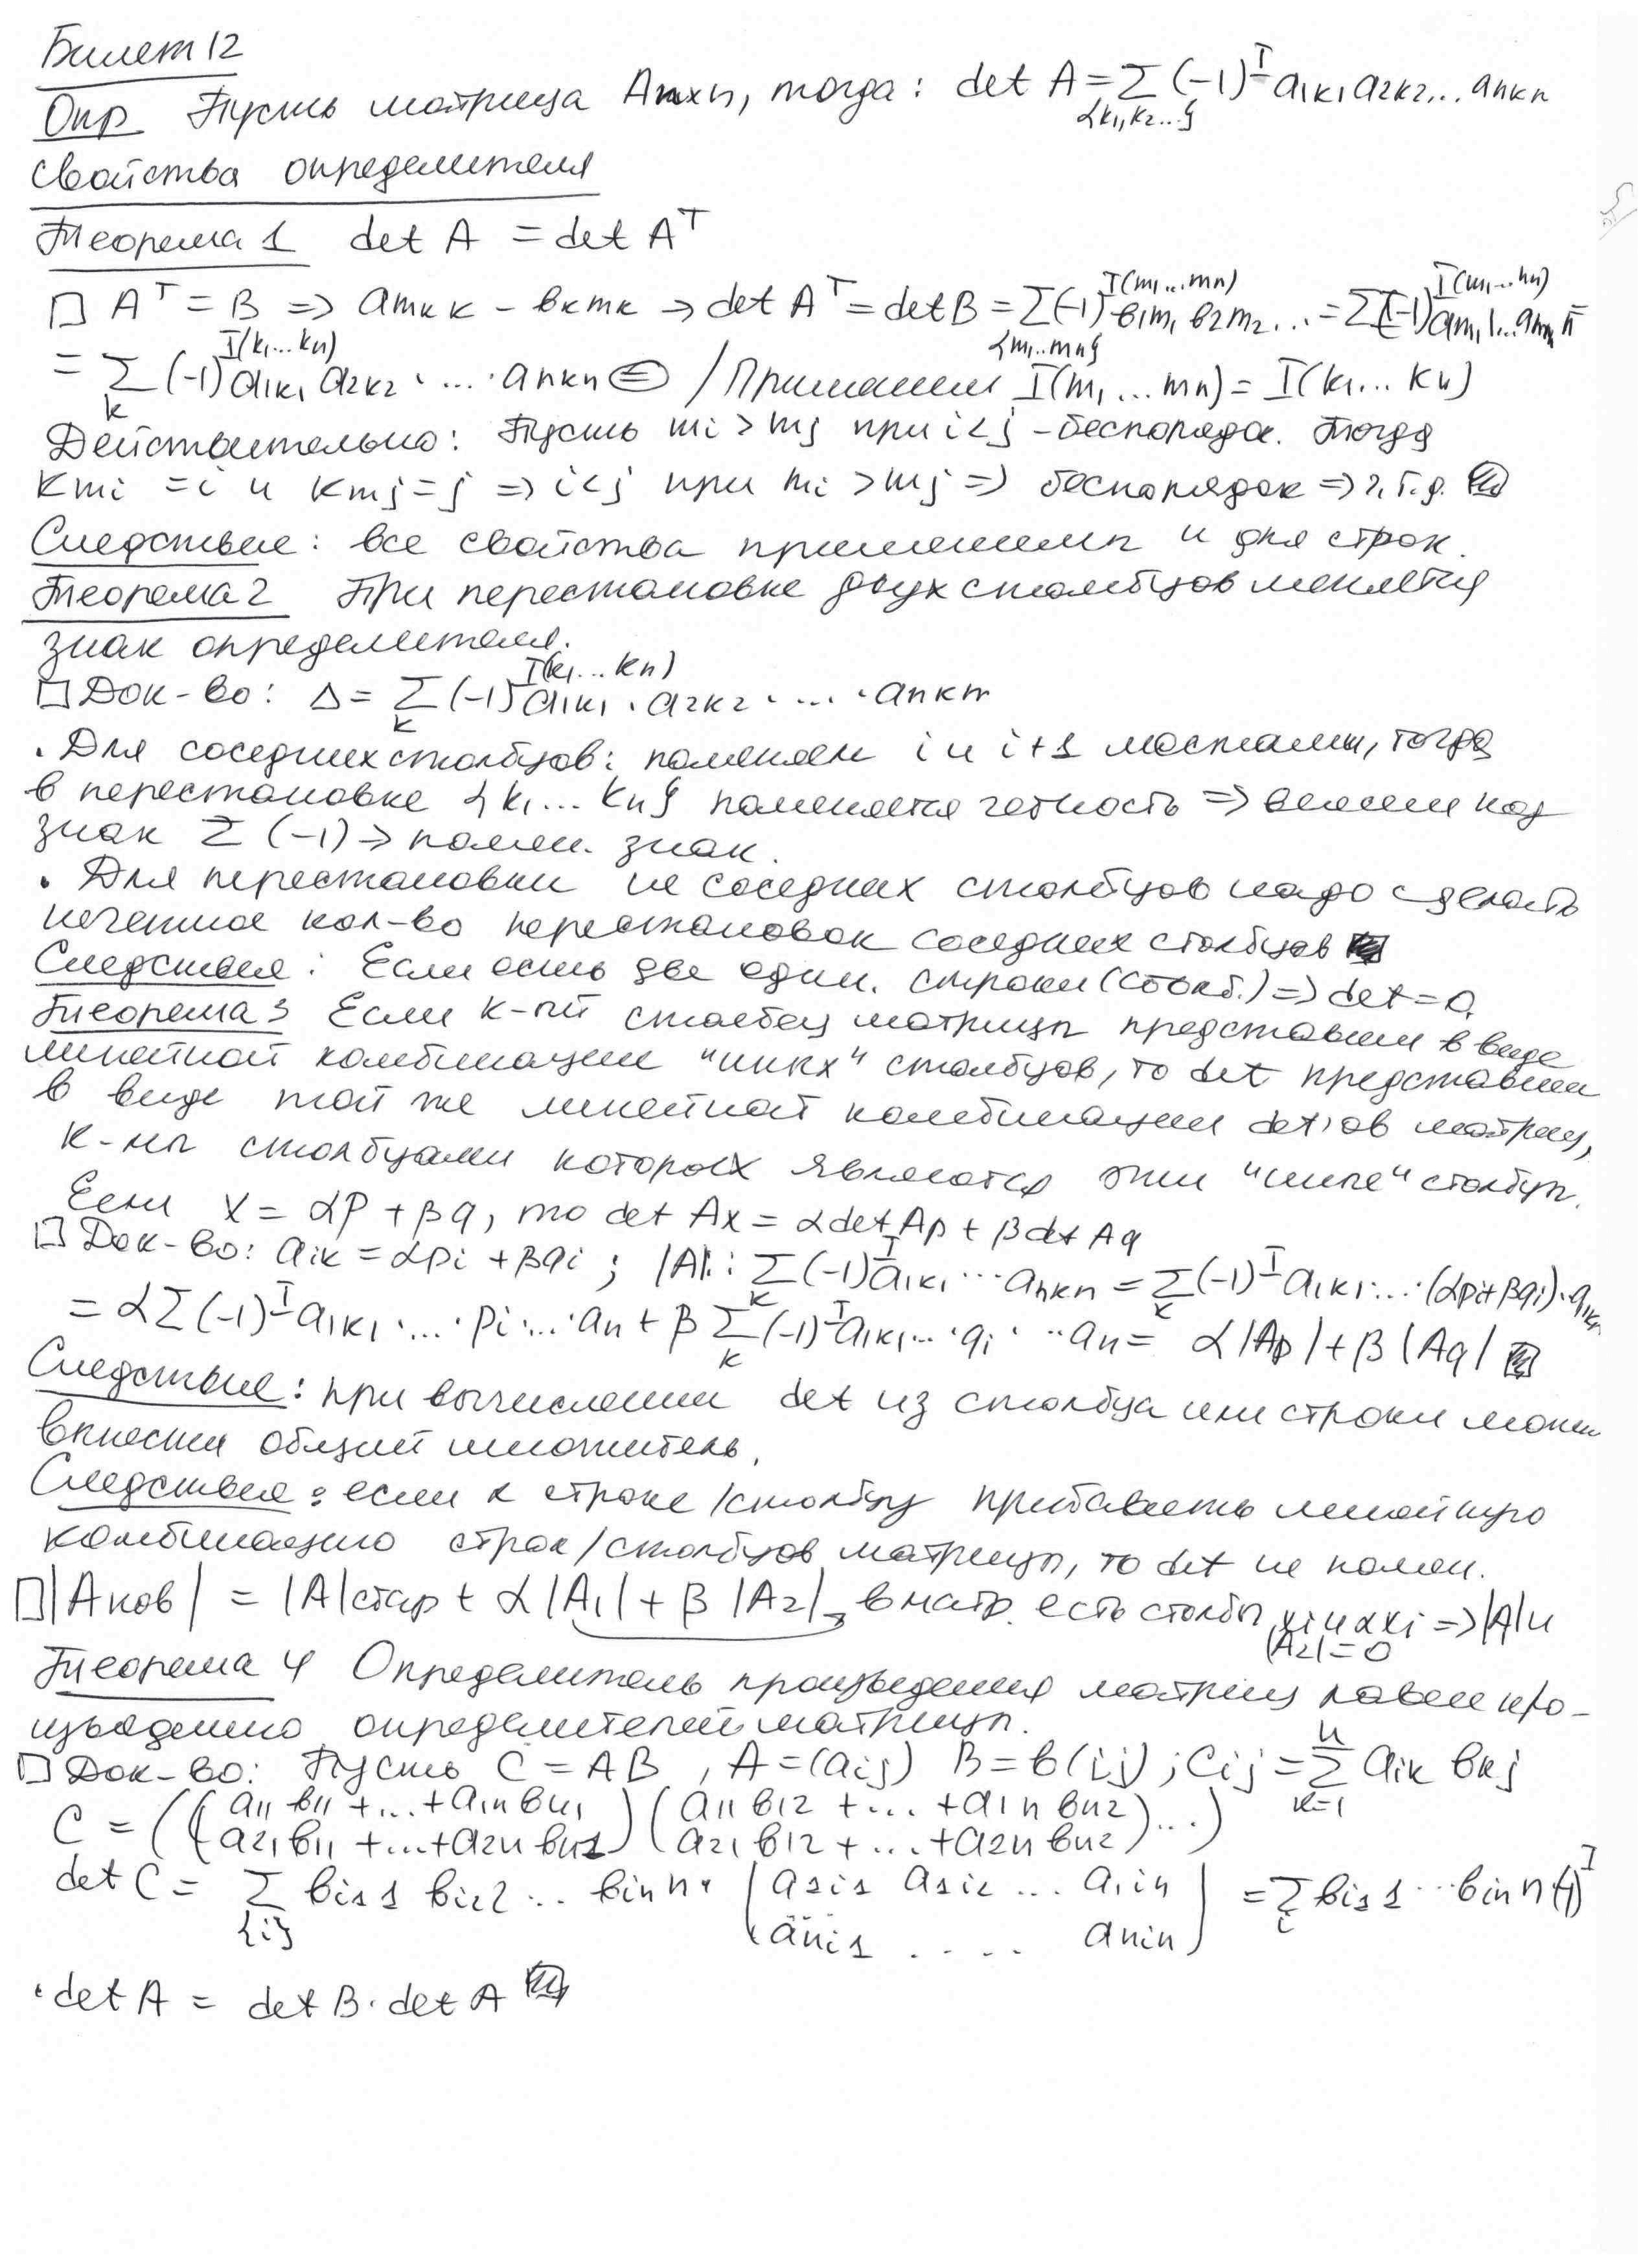 Билет 12
Опр Пусть матрица Anxn, тогда: det A = Σ (-1)^I a1k1 a2k2 ... ankn
{k1,k2...}
Свойства определителя
Теорема 1 det A = det A^T
□ A^T = B => amkk - bkmk → det A^T = det B = Σ(-1)^I(m1...mn) b1m1 b2m2 ... = Σ(-1)^I(m1...mn) am11...amnn =
{m1...mn}
= Σ (-1)^I(k1...kn) a1k1 a2k2 · ... · ankn ⊜ / Применим I(m1...mn) = I(k1...kn)
k
Действительно: Пусть mi > mj при i<j - беспорядок. Тогда
kmi = i и kmj = j => i<j при mi > mj => беспорядок => ч.т.д.
Следствие: все свойства применимы и для строк.
Теорема 2 При перестановке двух столбцов меняется
знак определителя.
□ Док-во: Δ = Σ (-1)^I(k1...kn) a1k1 · a2k2 · ... · ankn
k
· Для соседних столбцов: поменяем i и i+1 местами, тогда
в перестановке {k1...kn} поменяется четность => вынесем под
знак Σ (-1) → помен. знак.
· Для перестановки не соседних столбцов надо сделать
нечетное кол-во перестановок соседних столбцов
Следствие: Если есть две один. строки (столб.) => det = 0.
Теорема 3 Если к-ый столбец матрицы представим в виде
линейной комбинации "инкх" столбцов, то det представим
в виде той же линейной комбинации det'ов матриц,
к-мы столбцами которых являются эти "иные" столбцы.
Если X = αp + βq, то det Ax = α det Ap + β det Aq
□ Док-во: aik = αpi + βqi ; |A|: Σ (-1)^I a1k1 ... ankn = Σ (-1)^I a1k1 · ... · (αpi + βqi) · ankn
k k
= α Σ (-1)^I a1k1 · ... · pi · ... · an + β Σ (-1)^I a1k1 ... · qi · ·· an = α|Ap| + β|Aq|
k
Следствие: при вычислении det из столбца или строки можем
вынести общий множитель.
Следствие: если к строке/столбцу прибавить линейную
комбинацию строк/столбцов матрицы, то det не помен.
□ |Aнов| = |A|стар + α|A1| + β|A2| → в матр. есть столбцы xi и αxi => |A| и
|A2| = 0
Теорема 4 Определитель произведения матриц равен про-
изведению определителей матрицы.
□ Док-во: Пусть C = AB , A = (aij) B = b(ij) ; Cij = Σ aik bkj
n
k=1
C = ((a11 b11 + ... + a1n bn1)(a11 b12 + ... + a1n bn2) ...)
a21 b11 + ... + a2n bn1 a21 b12 + ... + a2n bn2
det C = Σ bi11 bi22 ... binn · |a1i1 a1i2 ... a1in| = Σ bi11 ... binn (-1)^I
{i} ani1 .... anin i
· det A = det B · det A